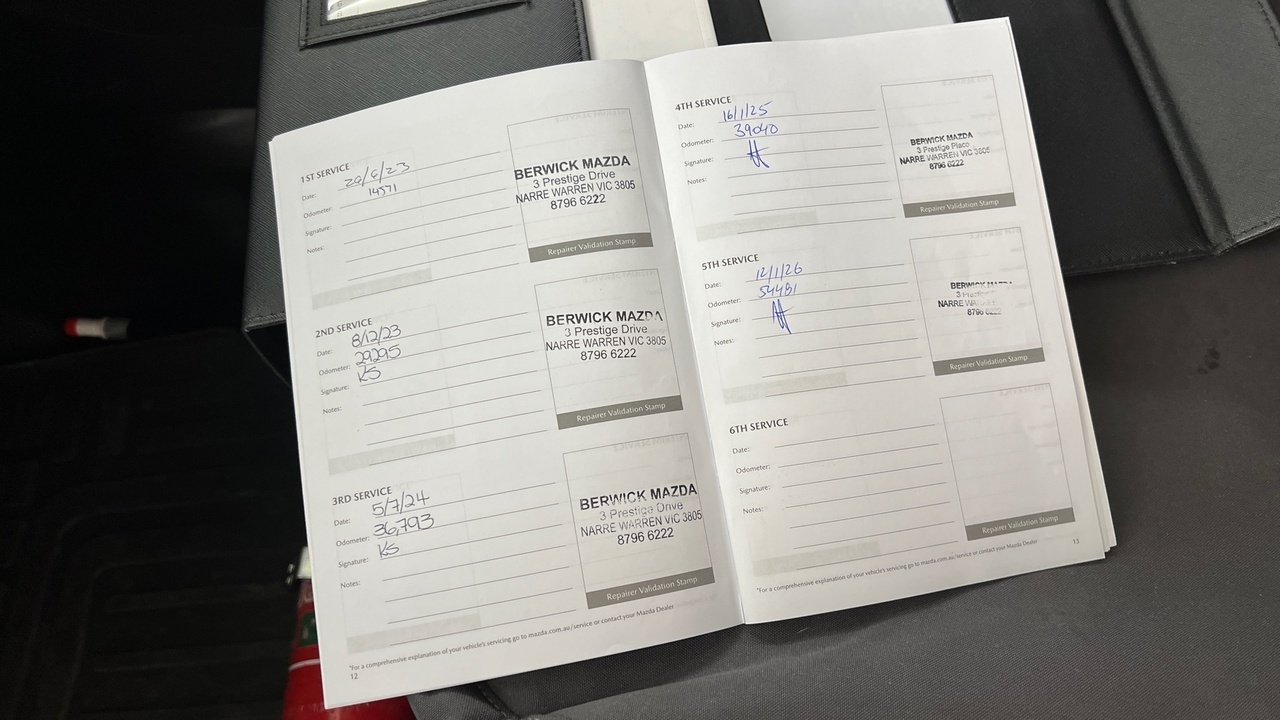 1ST SERVICE
Date: 20/6/23
Odometer: 14571
Signature:
Notes:
BERWICK MAZDA
3 Prestige Drive
NARRE WARREN VIC 3805
8796 6222
Repairer Validation Stamp
2ND SERVICE
Date: 8/12/23
Odometer: 29295
Signature: KS
Notes:
BERWICK MAZDA
3 Prestige Drive
NARRE WARREN VIC 3805
8796 6222
Repairer Validation Stamp
3RD SERVICE
Date: 5/7/24
Odometer: 36,793
Signature: KS
Notes:
BERWICK MAZDA
3 Prestige Drive
NARRE WARREN VIC 3805
8796 6222
Repairer Validation Stamp
*For a comprehensive explanation of your vehicle's servicing go to mazda.com.au/service or contact your Mazda Dealer
12
4TH SERVICE
Date: 16/1/25
Odometer: 39040
Signature:
Notes:
BERWICK MAZDA
3 Prestige Place
NARRE WARREN VIC 3805
8796 6222
Repairer Validation Stamp
5TH SERVICE
Date: 12/1/26
Odometer: 54481
Signature:
Notes:
BERWICK MAZDA
3
NARRE
8796 6222
Repairer Validation Stamp
6TH SERVICE
Date:
Odometer:
Signature:
Notes:
Repairer Validation Stamp
*For a comprehensive explanation of your vehicle's servicing go to mazda.com.au/service or contact your Mazda Dealer
13